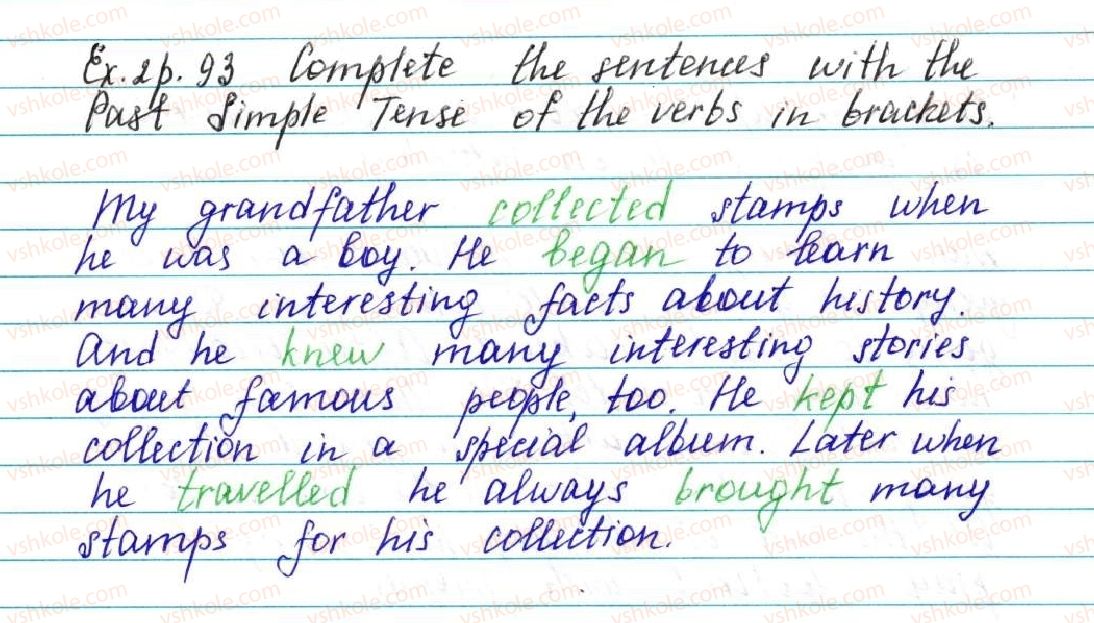 Ex. 2 p. 93 Complete the sentences with the
Past Simple Tense of the verbs in brackets.
My grandfather collected stamps when
he was a boy. He began to learn
many interesting facts about history.
And he knew many interesting stories
about famous people, too. He kept his
collection in a special album. Later when
he travelled he always brought many
stamps for his collection.